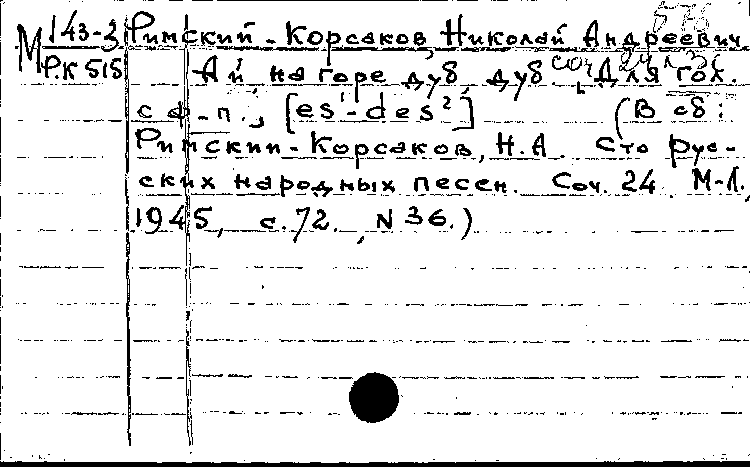 576
М 143-3 Римский-Корсаков, Николай Андреевич.
Р.К 515 Ай, на горе дуб, дуб. соч 24 № 36 Для гол.
с ф.-п., [es¹-des²] (В сб:
Римский-Корсаков, Н.А. Сто рус-
ских народных песен. Соч. 24. М-Л.,
1945, с. 72., N 36.)